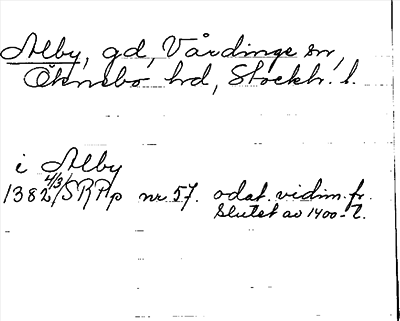 Alby, gd, Vårdinge sn,
Öknebo hd, Stockh. l.
i Alby
1382 4/3/ SRPp nr 57. odat. vidim. fr.
slutet av 1400-t.